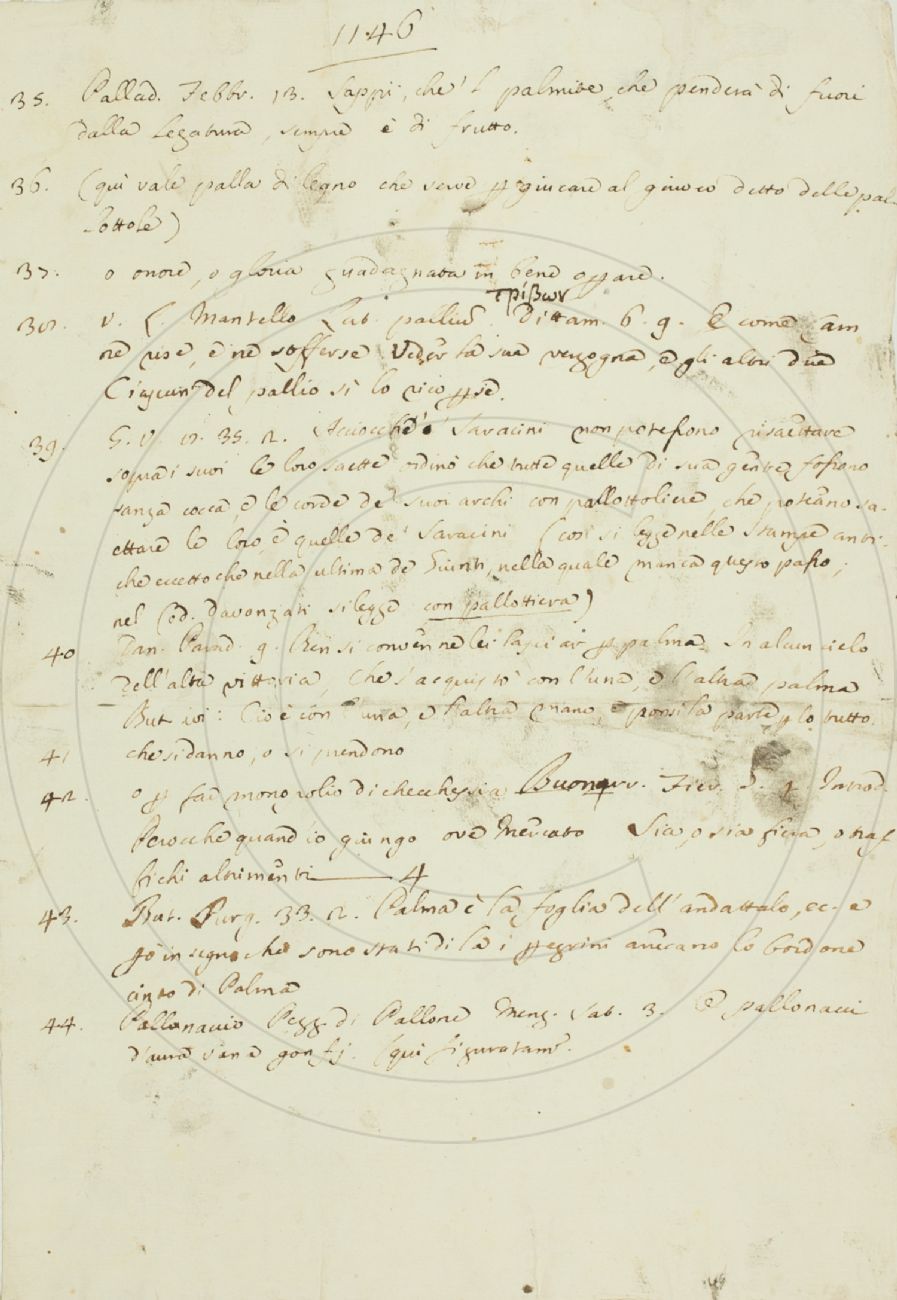 1146
35. Pallad. Febbr. 13. Sappi, che 'l palmite, che penderà di fuori
dalla legatura, sempre è di frutto.
36. (qui vale palla di legno che serve p giucare al giuoco detto delle pal-
lottole)
37. o onore, o gloria guadagnata in bene opare.
τρίβων
38. v. L. Mantello Lat. palliū. Dittam. 6. 9. E come Cam
ne rise, e ne sofferse Veder la sua vergogna, e gli altri due
Ciascun del pallio sì lo ricopse.
39. G. V. 8. 35. 2. Acciocchè i Saracini non potessono risaettare
sopra i suoi le loro saette ordinò che tutte quelle di sua gente fossono
sanza cocca, e le corde de' suoi archi con pallottoliere, che poteano sa-
ettare le loro, e quelle de' Saracini (così si legge nelle stampe anti-
che eccetto che nella ultima de' Giunti, nella quale manca questo passo;
nel Cod. Davanzati si legge con pallottiera)
40 Dan. Parad. 9. Ben si convenne lei lasciar p palma In alcun cielo
dell'alta vittoria, Che s'acquistò con l'una, e l'altra palma
But. ivi: Cioè con l'una, e l'altra mano, e ponsi la parte p lo tutto.
41 che si danno, o si prendono
42. o p far monopolio di checchessia Buonarr. Fier. Introd.
Perocchè quand'io giungo ove mercato Sia, o sia fiera, o traf
fichi altrimenti 4
43. But. Purg. 33. 2. Palma è la foglia dell'andattalo, ec. e
pò in segno che sono stati di là i pegrini arrecano lo bordone
cinto di Palma
44. Pallonaccio Pegg. di Pallone Menz. Sat. 3. E pallonacci
d'aura vana gonfj. (qui figuratam.